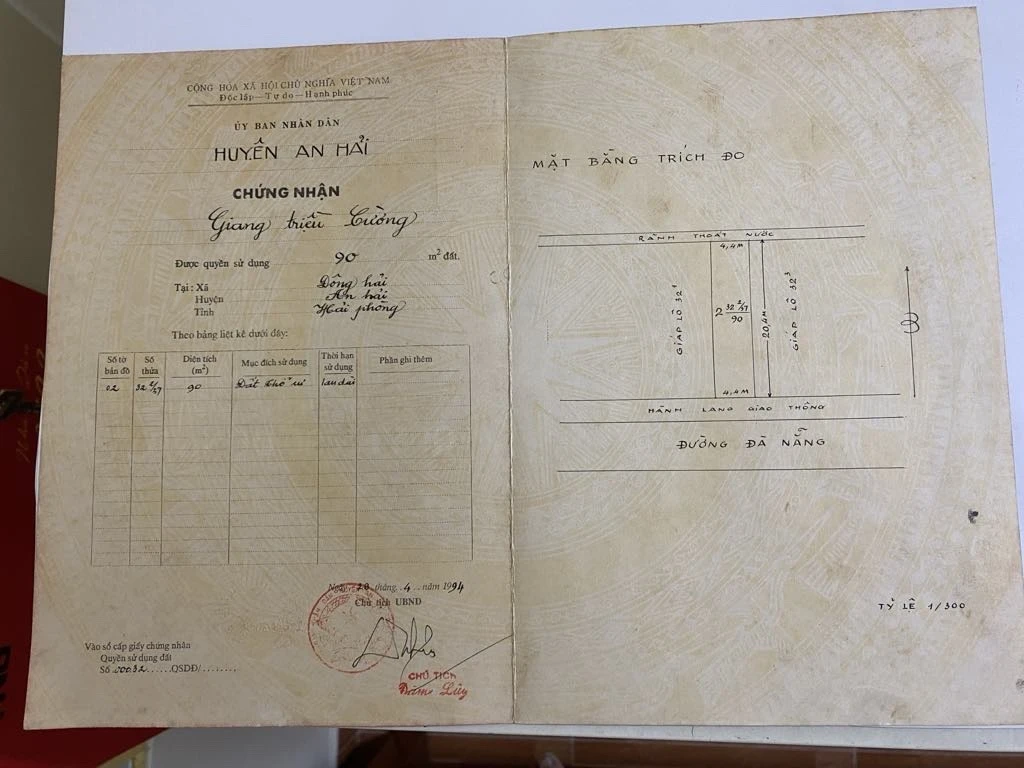 CỘNG HÒA XÃ HỘI CHỦ NGHĨA VIỆT NAM
Độc lập — Tự do — Hạnh phúc
ỦY BAN NHÂN DÂN
HUYỆN AN HẢI
CHỨNG NHẬN
Giang triều Cường
Được quyền sử dụng 90 m² đất.
Tại : Xã Đông hải
Huyện An hải
Tỉnh Hải phòng
Theo bảng liệt kê dưới đây:
Số tờ bản đồ Số thửa Diện tích (m²) Mục đích sử dụng Thời hạn sử dụng Phần ghi thêm
02 32 2/27 90 Đất thổ cư lâu dài
Ngày 20 tháng 4 năm 1994
Chủ tịch UBND
CHỦ TỊCH
Vào sổ cấp giấy chứng nhận
Quyền sử dụng đất
Số 00032 QSDĐ/
MẶT BẰNG TRÍCH ĐO
RÃNH THOÁT NƯỚC
4,4M
GIÁP LÔ 32¹
2 32 2/27
90
20,4M
GIÁP LÔ 32³
4,4M
HÀNH LANG GIAO THÔNG
ĐƯỜNG ĐÀ NẴNG
TỶ LỆ 1/300